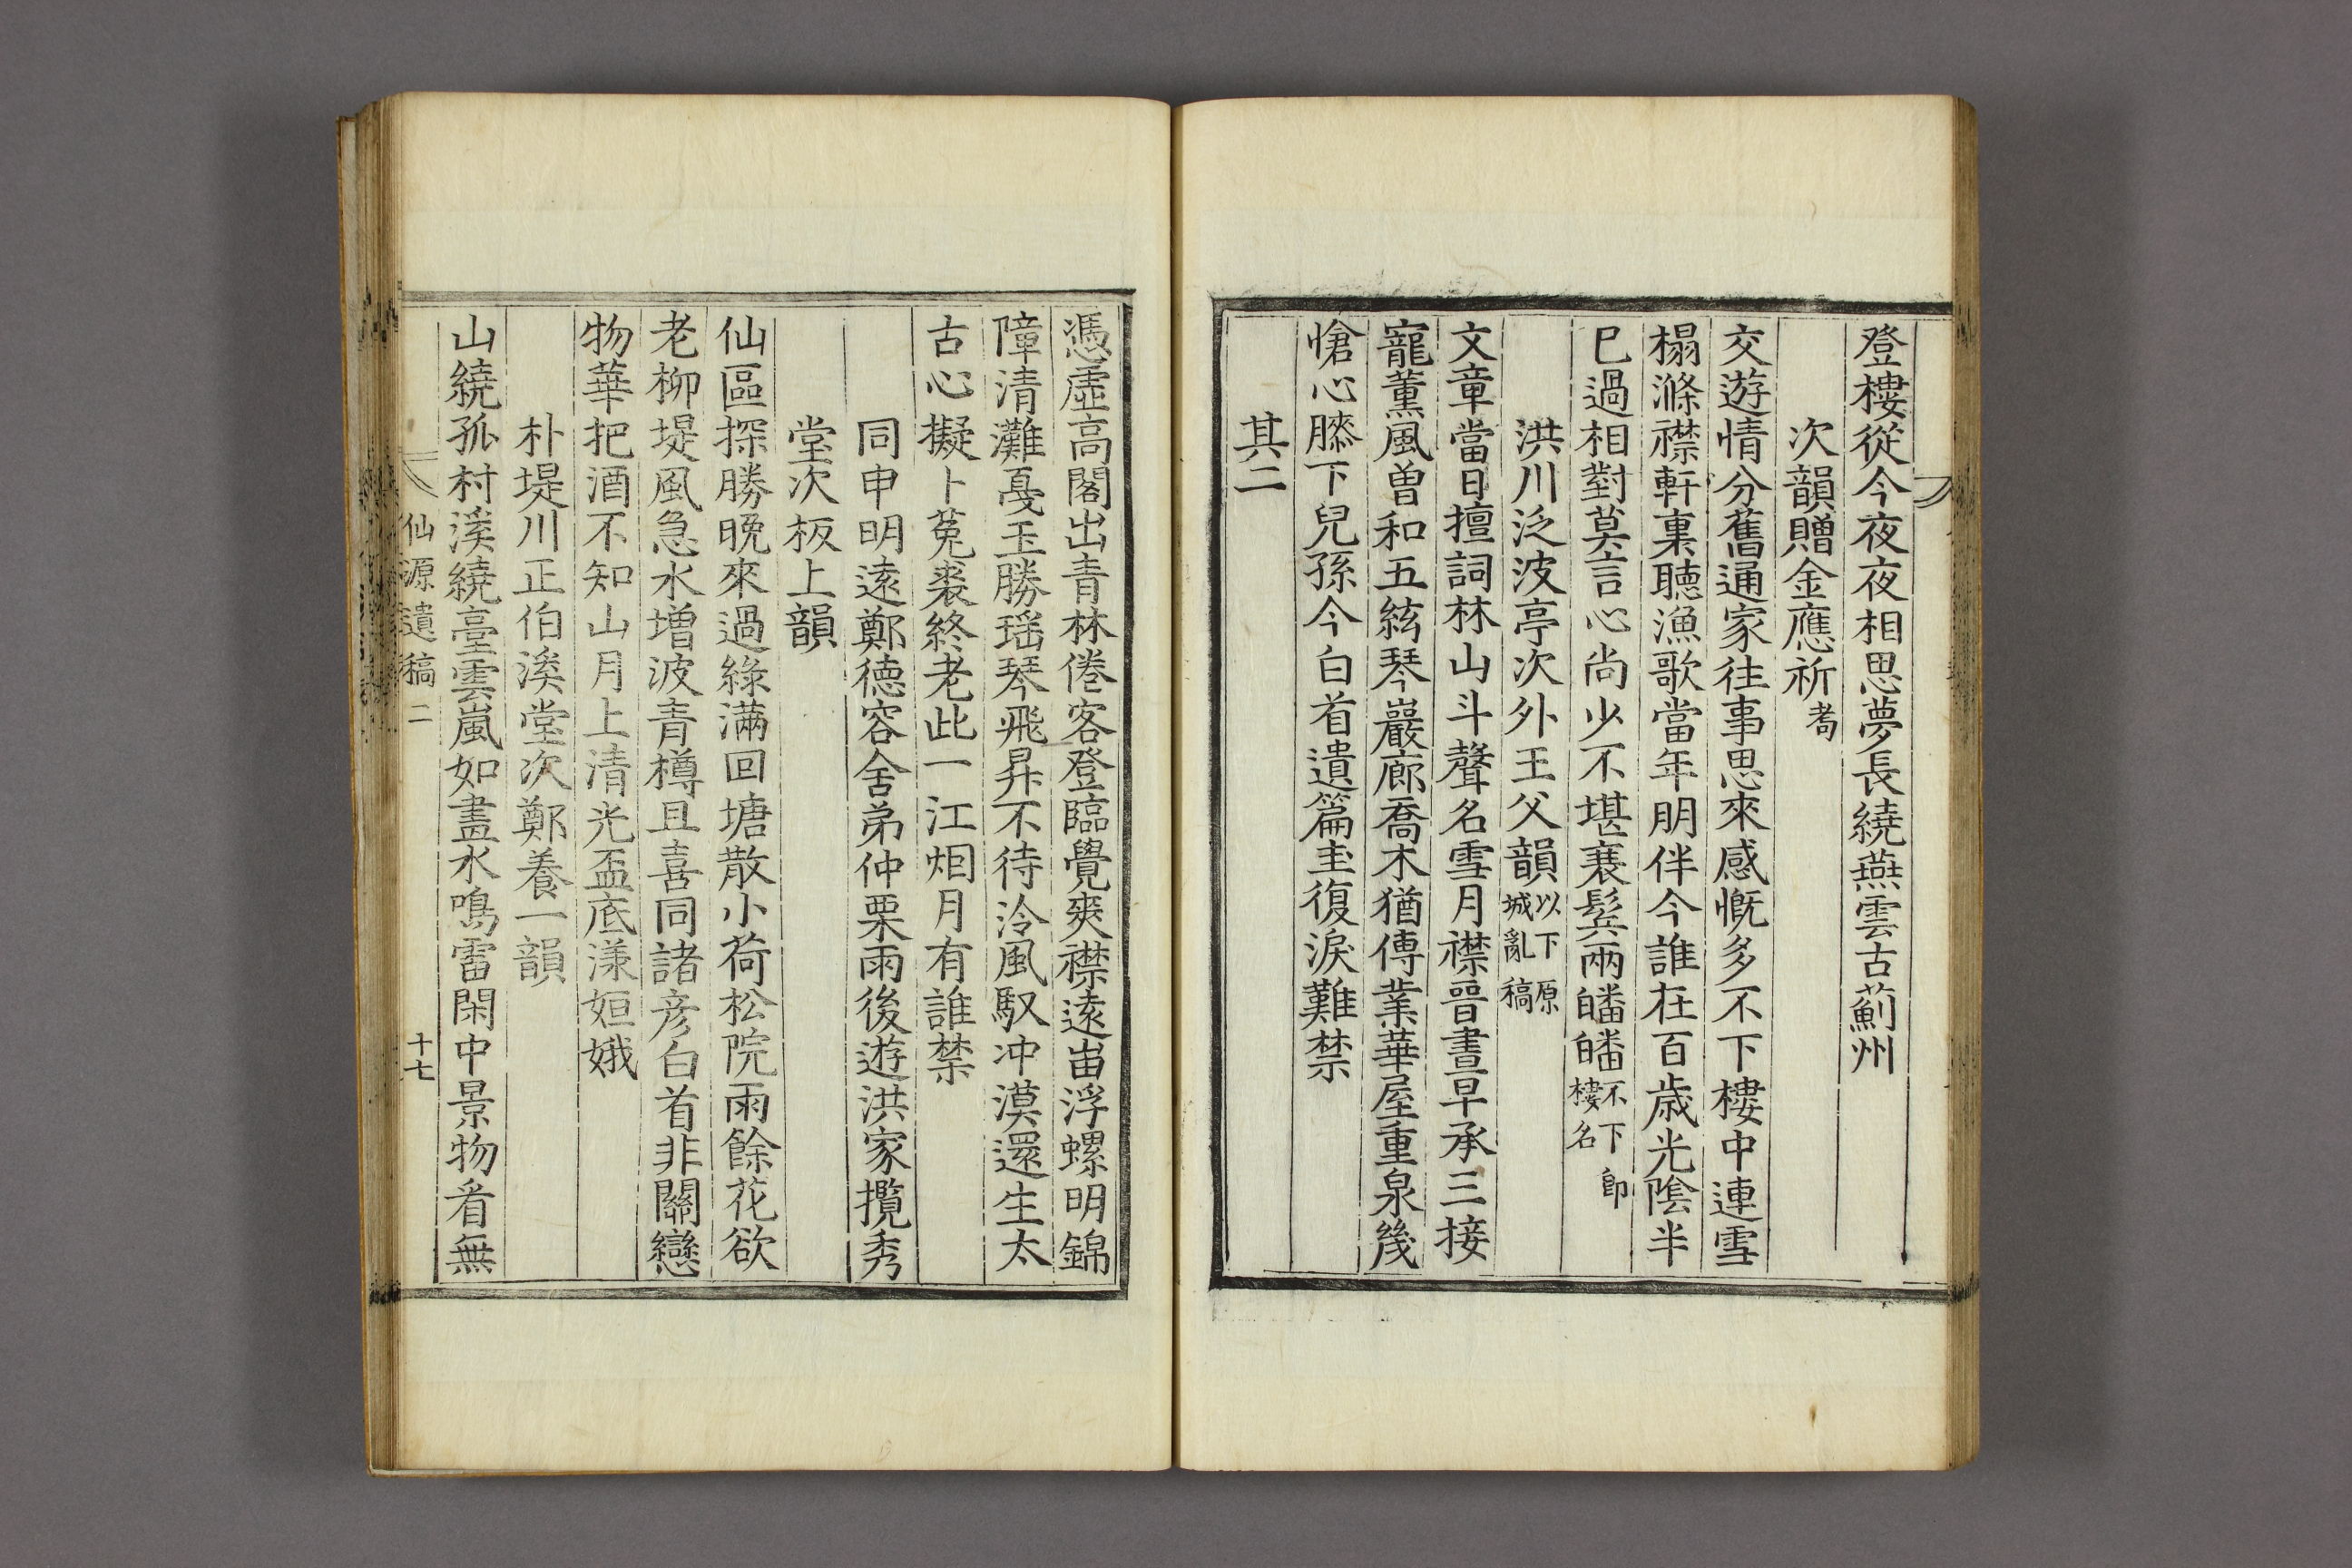 登樓從今夜夜相思夢長繞燕雲古薊州
次韻贈金應祈耇
交遊情分舊通家往事思來感慨多不下樓中連雪
榻滌襟軒裏聽漁歌當年朋伴今誰在百歲光陰半
已過相對莫言心尙少不堪衰鬓兩皤皤不下卽樓名
洪川泛波亭次外王父韻以下原城亂稿
文章當日擅詞林山斗聲名雪月襟晉晝早承三接
寵薰風曾和五絃琴巖廊喬木猶傳業華屋重泉幾
愴心膝下兒孫今白首遺篇圭復淚難禁
其二
憑虛高閣出青林倦客登臨覺爽襟遠峀浮螺明錦
障清灘戞玉勝瑶琴飛昇不待泠風馭冲漠還生太
古心擬卜菟裘終老此一江烟月有誰禁
同申明遠鄭德容舍弟仲栗雨後遊洪家攬秀
堂次板上韻
仙區探勝晚來過綠滿回塘散小荷松院雨餘花欲
老柳堤風急水增波青樽且喜同諸彦白首非關戀
物華把酒不知山月上清光盃底漾姮娥
朴堤川正伯溪堂次鄭養一韻
山繞孤村溪繞臺雲嵐如畫水鳴雷閑中景物看無
仙源遺稿二 十七